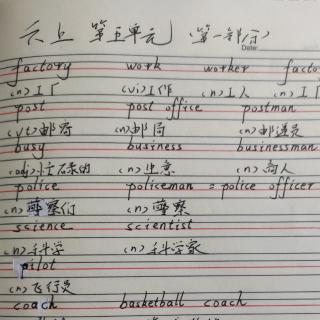 六上 第五单元 (第一部分)
Date:
factory work worker facto
(n)工厂 (vi)工作 (n)工人 (n)工厂
post post office postman
(vt)邮寄 (n)邮局 (n)邮递员
busy business businessman
(adj)忙碌的 (n)生意 (n)商人
police policeman = police officer
(n)警察们 (n)警察
science scientist
(n)科学 (n)科学家
pilot
(n)飞行员
coach basketball coach